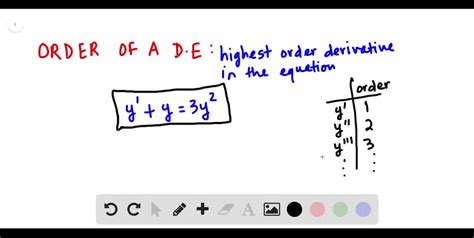 ORDER OF A D.E : highest order derivative
in the equation
y' + y = 3y²
order
y' 1
y'' 2
y''' 3
⋮ ⋮
A